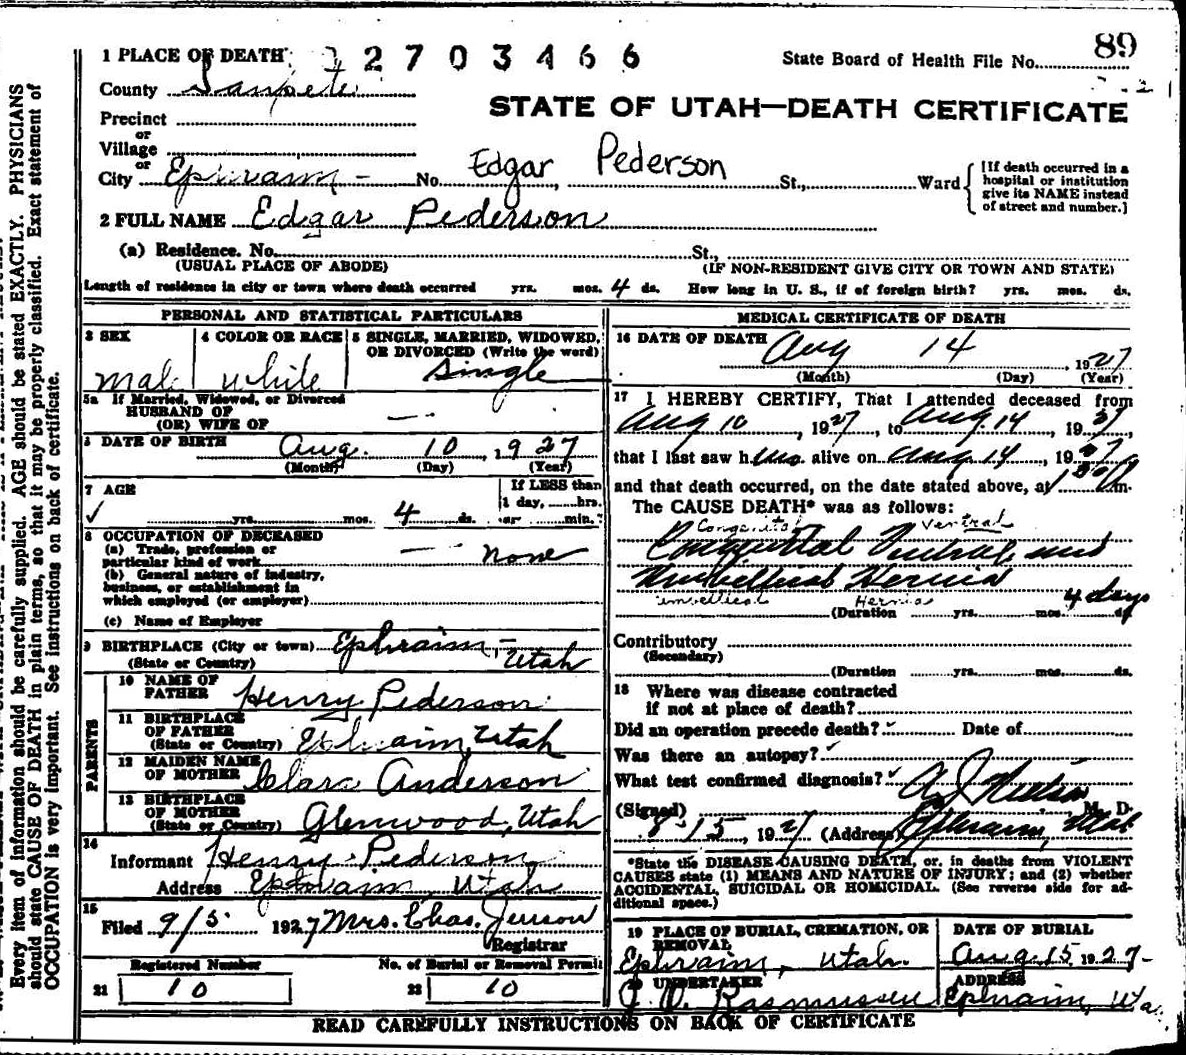 1 PLACE OF DEATH 2703466
State Board of Health File No. 89
County Sanpete
STATE OF UTAH—DEATH CERTIFICATE
Precinct
or
Village
or
City Ephraim - No. Edgar Pederson St., Ward
[If death occurred in a hospital or institution give its NAME instead of street and number.]
2 FULL NAME Edgar Pederson
(a) Residence. No. St.,
(USUAL PLACE OF ABODE) (IF NON-RESIDENT GIVE CITY OR TOWN AND STATE)
Length of residence in city or town where death occurred yrs. mos. 4 ds. How long in U. S., if of foreign birth? yrs. mos. ds.
PERSONAL AND STATISTICAL PARTICULARS
3 SEX 4 COLOR OR RACE 5 SINGLE, MARRIED, WIDOWED, OR DIVORCED (Write the word)
Male white Single
5a If Married, Widowed, or Divorced
HUSBAND OF
(OR) WIFE OF —
6 DATE OF BIRTH Aug. 10, 1927
(Month) (Day) (Year)
7 AGE If LESS than
1 day, hrs.
yrs. mos. 4 ds. or min.
8 OCCUPATION OF DECEASED
(a) Trade, profession or
particular kind of work — none
(b) General nature of industry,
business, or establishment in
which employed (or employer)
(c) Name of Employer
9 BIRTHPLACE (City or town) Ephraim,
(State or Country) Utah
PARENTS
10 NAME OF
FATHER Henry Pederson
11 BIRTHPLACE
OF FATHER
(State or Country) Ephraim, Utah
12 MAIDEN NAME
OF MOTHER Clara Anderson
13 BIRTHPLACE
OF MOTHER
(State or Country) Glenwood, Utah
14
Informant Henry Pederson
Address Ephraim, Utah
15
Filed 9/5 1927 Mrs. Chas. Jenson
Registrar
Registered Number No. of Burial or Removal Permit
21 10 22 10
MEDICAL CERTIFICATE OF DEATH
16 DATE OF DEATH Aug 14, 1927
(Month) (Day) (Year)
17 I HEREBY CERTIFY, That I attended deceased from
Aug 10, 1927, to Aug. 14, 1927,
that I last saw him alive on Aug 14, 1927
and that death occurred, on the date stated above, at m.
The CAUSE DEATH* was as follows:
Congenital Ventral
Congenital Ventral and
Umbilical Hernia
umbellical Hernia
(Duration yrs. mos. 4 days ds.
Contributory
(Secondary)
(Duration yrs. mos. ds.
18 Where was disease contracted
if not at place of death?
Did an operation precede death? Date of
Was there an autopsy?
What test confirmed diagnosis?
(Signed) M. D.
8-15, 1927 (Address) Ephraim, Utah
*State the DISEASE CAUSING DEATH, or, in deaths from VIOLENT
CAUSES state (1) MEANS AND NATURE OF INJURY; and (2) whether
ACCIDENTAL, SUICIDAL OR HOMICIDAL. (See reverse side for ad-
ditional space.)
19 PLACE OF BURIAL, CREMATION, OR REMOVAL DATE OF BURIAL
Ephraim, Utah. Aug 15 1927
20 UNDERTAKER ADDRESS
Rasmussen Ephraim,
READ CAREFULLY INSTRUCTIONS ON BACK OF CERTIFICATE
Every item of information should be carefully supplied. AGE should be stated EXACTLY. PHYSICIANS
should state CAUSE OF DEATH in plain terms, so that it may be properly classified. Exact statement of
OCCUPATION is very important. See instructions on back of certificate.